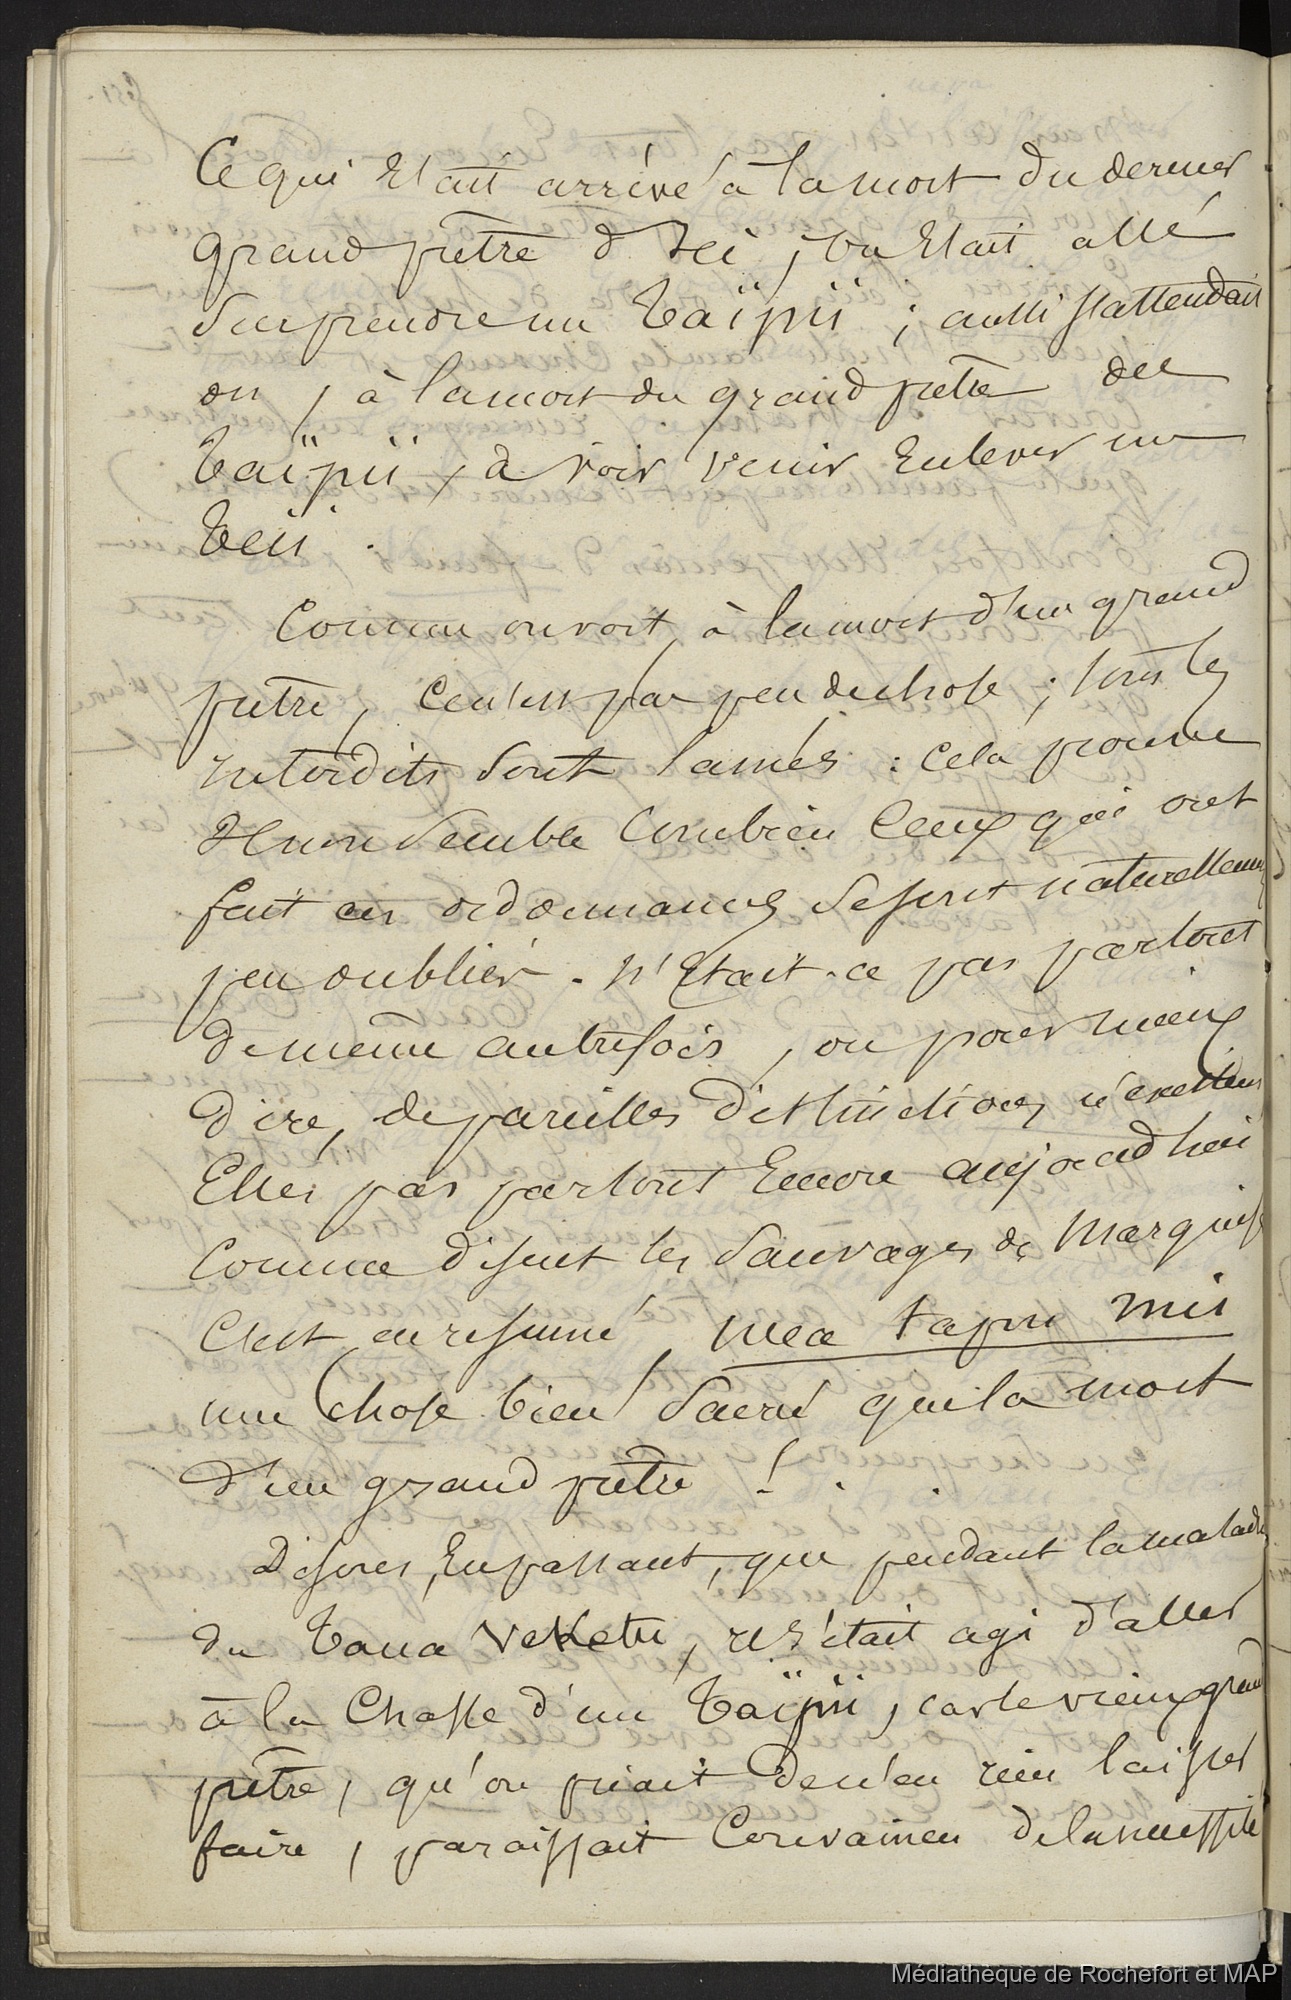 Ce qui était arrivé à la mort du dernier
grand prêtre d'Hei, on était allé
surprendre un Taïpii ; aussi s'attendait
on, à la mort du grand prêtre des
Taïpii, à voir venir enlever un
Teii.
Comme on voit, à la mort d'un grand
prêtre, ce n'est pas peu de chose ; tous les
interdits sont lancés : cela prouve
il me semble combien ceux qui ont
fait ces ordonnances se sont naturellement
peu oubliés. N'était-ce pas partout
de même autrefois, ou pour mieux
dire, de pareilles distinctions n'existent
elles pas partout encore aujourd'hui
Comme disent les sauvages des Marquises
c'est en résumé mea tapu mei
une chose bien sacré que la mort
d'un grand prêtre ! . .
Disons, en passant, que pendant la maladie
du Taua Veketu, il s'était agi d'aller
à la chasse d'un Taïpii, car le vieux grand
prêtre, qu'on priait de n'en rien laisser
faire, paraissait convaincu de la nécessité
Médiathèque de Rochefort et MAP